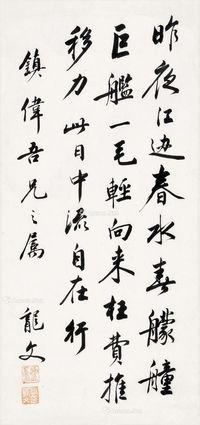 昨夜江边春水艨艟
巨艦一毛輕向来枉費推
移力此日中流自在行
鎮偉吾兄之属
龍文